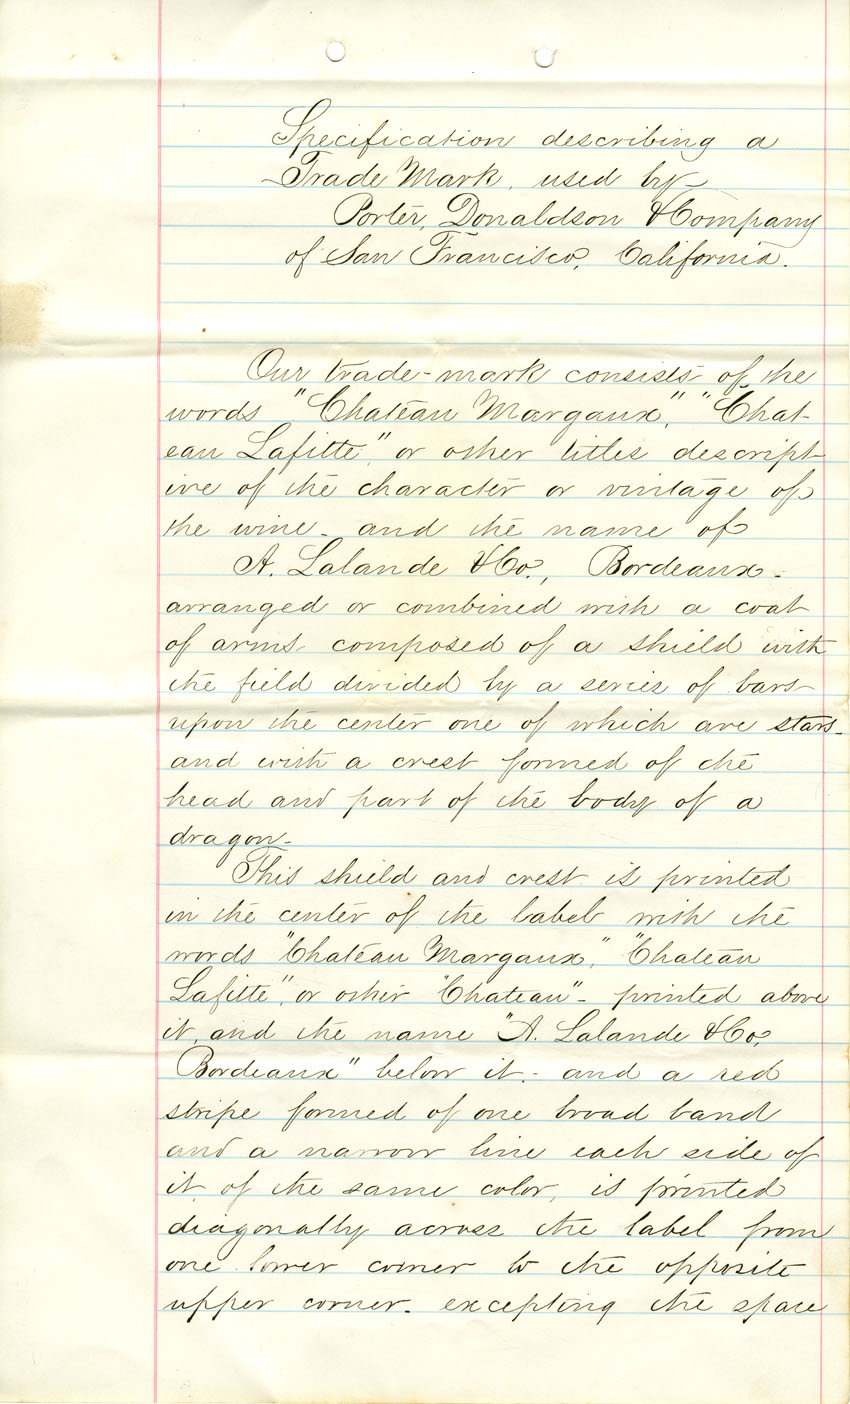 Specification describing a
Trade Mark, used by
Porter, Donaldson & Company
of San Francisco, California.
Our trade-mark consists of the
words "Chateau Margaux," "Chat-
eau Lafitte," or other titles descript-
ive of the character or vintage of
the wine - and the name of
A. Lalande & Co., Bordeaux -
arranged or combined with a coat
of arms composed of a shield with
the field divided by a series of bars
upon the center one of which are stars-
and with a crest formed of the
head and part of the body of a
dragon-
This shield and crest is printed
in the center of the label with the
words "Chateau Margaux," "Chateau
Lafitte", or other "Chateau" - printed above
it, and the name "A. Lalande & Co,
Bordeaux" below it - and a red
stripe formed of one broad band
and a narrow line each side of
it, of the same color, is printed
diagonally across the label from
one lower corner to the opposite
upper corner - excepting the space